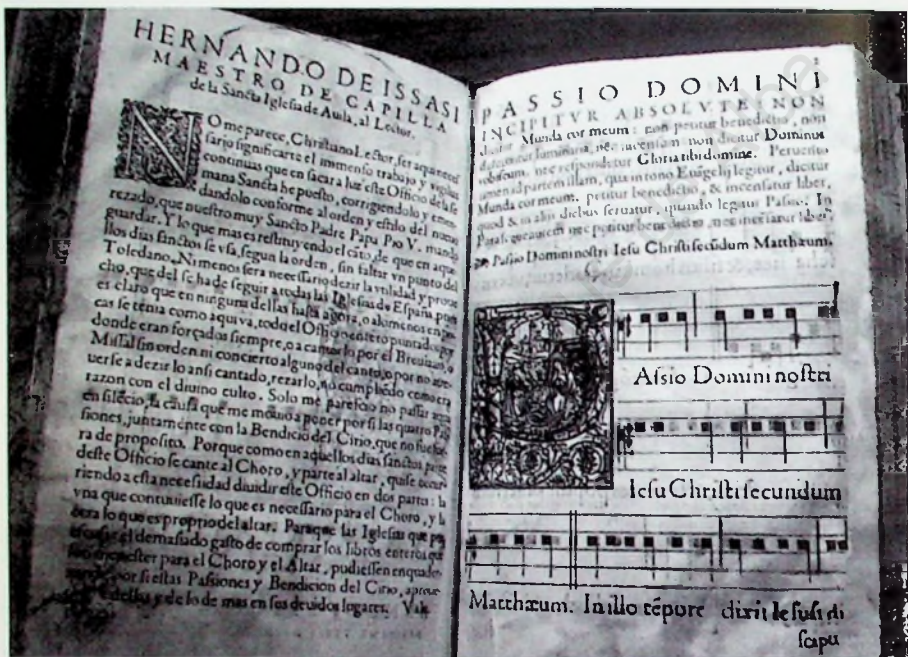 HERNANDO DE ISSASI
MAESTRO DE CAPILLA
de la Sancta Iglesia de Auila, al Lector.
NO me parece, Christiano Lector, ser aqui neces
sario significarte el immenso trabajo y vigilias
continuas que en sacar a luz este Officio de la se
mana Sancta he puesto, corrigiendolo y enmen
dandolo conforme al orden y estilo del nueuo
rezado, que nuestro muy Sancto Padre Papa Pio V. mando
guardar. Y lo que mas es restituyendo el cāto, de que en aque
llos dias sanctos se vsa, segun la orden, sin faltar vn punto del
Toledano. Ni menos sera necessario dezir la vtilidad y proue
cho, que del se ha de seguir a todas las Iglesias de España, pues
es claro que en ninguna dellas hasta agora, o alomenos en po
cas se tenia como aqui va, todo el Officio entero puntado, por
donde eran forçados siempre, o a cantarlo por el Breuiario, o
Missal sin orden ni concierto alguno del canto, o por no atre
uerse a dezir lo ansi cantado, rezarlo, no cumpliēdo como era
razon con el diuino culto. Solo me parescio no passar
en silēcio, la causa que me mouio a poner por si las quatro Pas
siones, juntamente con la Bendiciō del Cirio, que no fue fue
ra de proposito. Porque como en aquellos dias sanctos parte
deste Officio se cante al Choro, y parte al altar, quise occur
riendo a esta necessidad diuidir este Officio en dos partes: la
vna que contuuiesse lo que es necessario para el Choro, y la
otra lo que es proprio del altar. Para que las Iglesias que
el demasiado gasto de comprar los libros enteros que
menester para el Choro y el Altar, pudiessen enquader
por si estas Passiones y Bendicion del Cirio,
dellas y de lo de mas en sus deuidos lugares. Vale
1
PASSIO DOMINI
INCIPITVR ABSOLVTE: NON
dicitur Munda cor meum: non petitur benedictio, non
deferuntur luminaria, nec incensum non dicitur Dominus
vobiscum, nec respondetur Gloria tibi domine. Peruento
tamen ad partem illam, quæ in tono Euāgelij legitur, dicitur
Munda cor meum, petitur benedictio, & incensatur liber,
quod & in alijs diebus seruatur, quando legitur Passio. In
Paras. autem nec petitur benedictio, nec incensatur liber.
Passio Domini nostri Iesu Christi secūdum Matthæum.
PAssio Domini nostri
Iesu Christi secundum
Matthæum. In illo tēpore dixit Iesus di
scipu